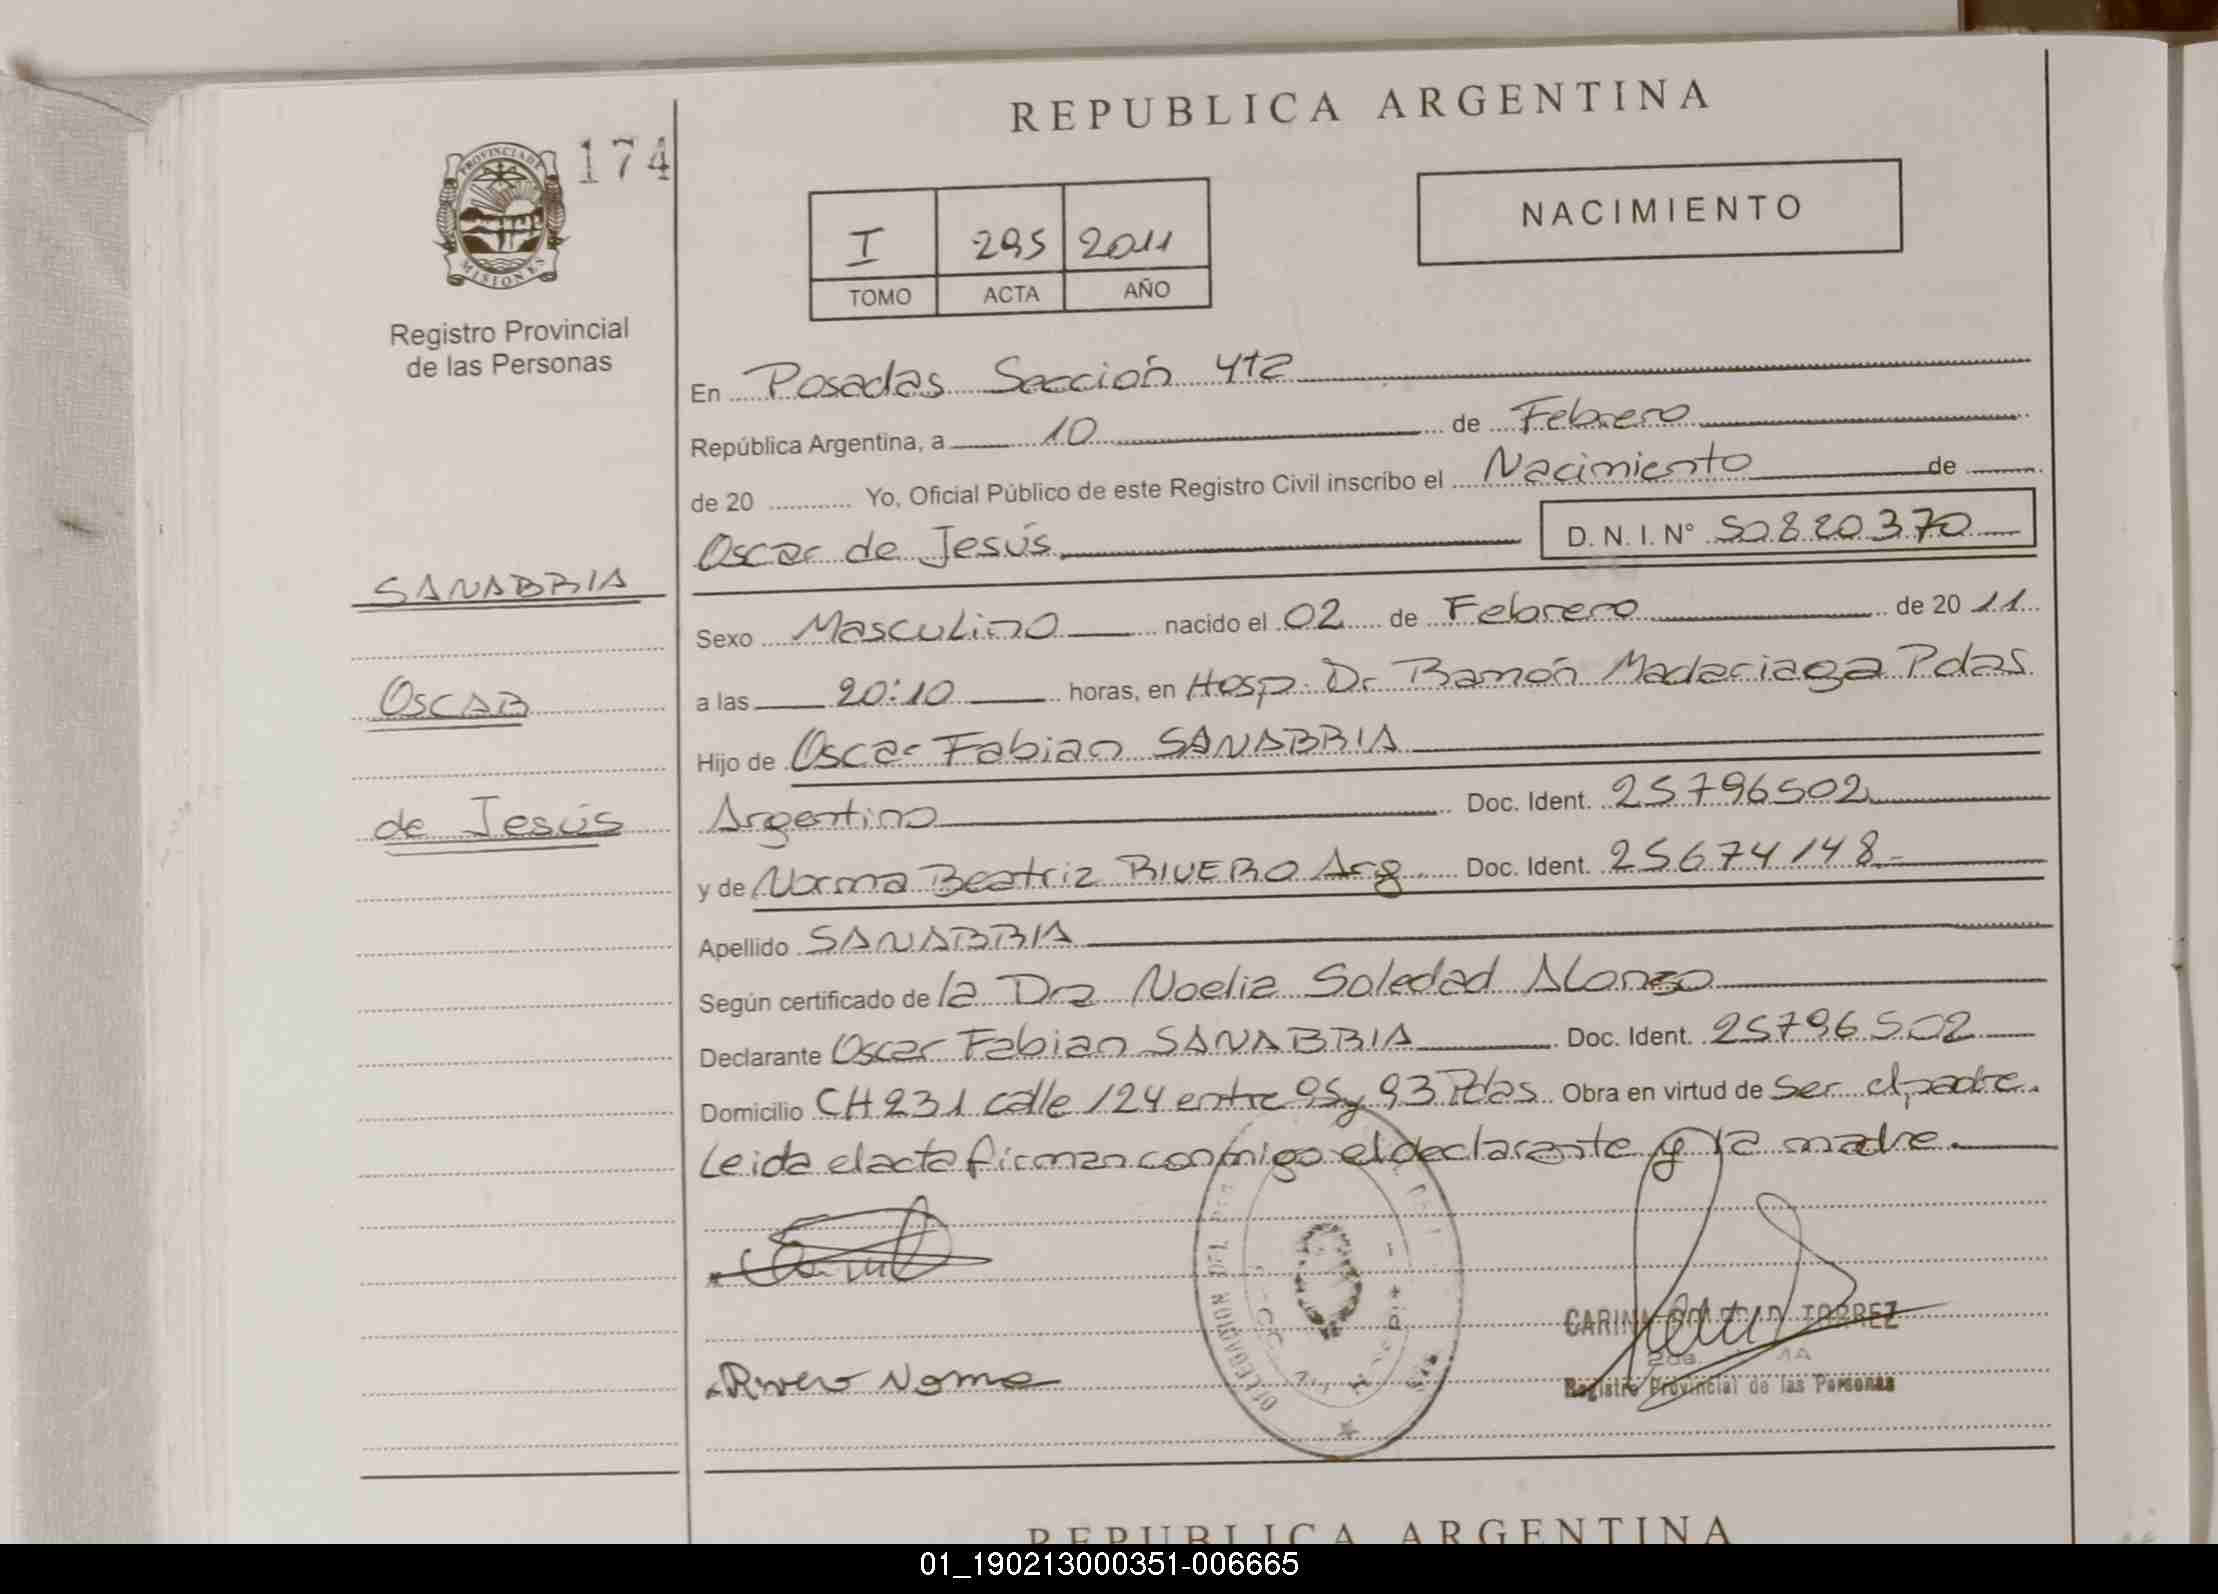 REPUBLICA ARGENTINA
PROVINCIA DE
MISIONES
174
Registro Provincial
de las Personas
I 295 2011
TOMO ACTA AÑO
NACIMIENTO
En Posadas Sección 4ta
República Argentina, a 10 de Febrero
de 20 Yo, Oficial Público de este Registro Civil inscribo el Nacimiento de
Oscar de Jesús D. N. I. N° 50820370
SANABRIA
OSCAR
de Jesús
Sexo Masculino nacido el 02 de Febrero de 20 11
a las 20:10 horas, en Hosp. Dr Ramón Madariaga Pdas
Hijo de Oscar Fabian SANABRIA
Argentino Doc. Ident. 25796502
y de Norma Beatriz RIVERO Arg Doc. Ident. 25674148
Apellido SANABRIA
Según certificado de la Dra Noelia Soledad Alonso
Declarante Oscar Fabian SANABRIA Doc. Ident. 25796502
Domicilio CH 231 calle 124 entre 95 y 93 Pdas Obra en virtud de Ser el padre.
Leida el acta firman conmigo el declarante y la madre.
DELEGACION DEL
CARINA SOLEDAD TORREZ
Registro Provincial de las Personas
Rivero Norma
REPUBLICA ARGENTINA
01_190213000351-006665